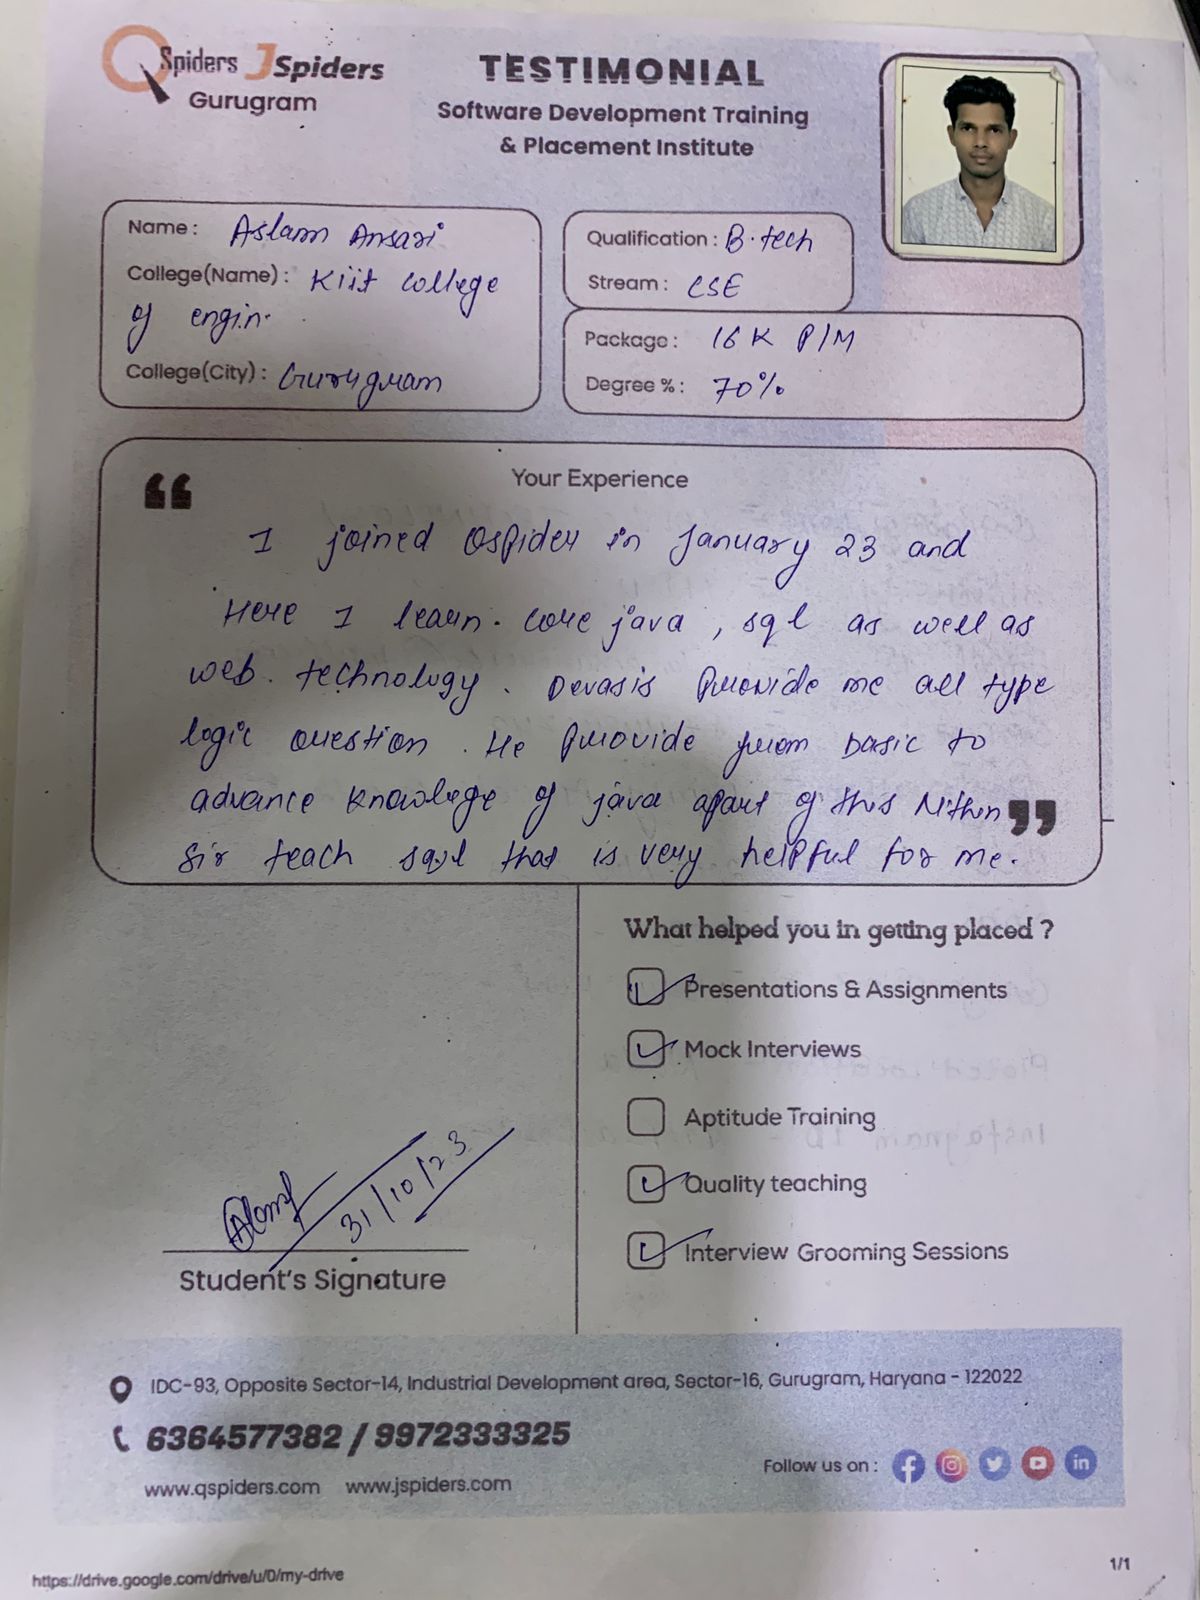 QSpiders JSpiders
Gurugram
TESTIMONIAL
Software Development Training
& Placement Institute
Name : Aslam Ansari
College(Name) : Kiit college
of engin.
College(City) : Gurugram
Qualification : B.tech
Stream : CSE
Package : 16 K P/M
Degree % : 70%
Your Experience
“
I joined Qspider in January 23 and
Here I learn. core java, sql as well as
web. technology. Devasis provide me all type
logic question. He provide from basic to
advance knowlege of java apart of this Nithin
Sir teach sql that is very helpful for me.
”
What helped you in getting placed ?
Presentations & Assignments
Mock Interviews
Aptitude Training
Quality teaching
Interview Grooming Sessions
31/10/23
Student's Signature
IDC-93, Opposite Sector-14, Industrial Development area, Sector-16, Gurugram, Haryana - 122022
6364577382 / 9972333325
www.qspiders.com www.jspiders.com
Follow us on :
https://drive.google.com/drive/u/0/my-drive
1/1